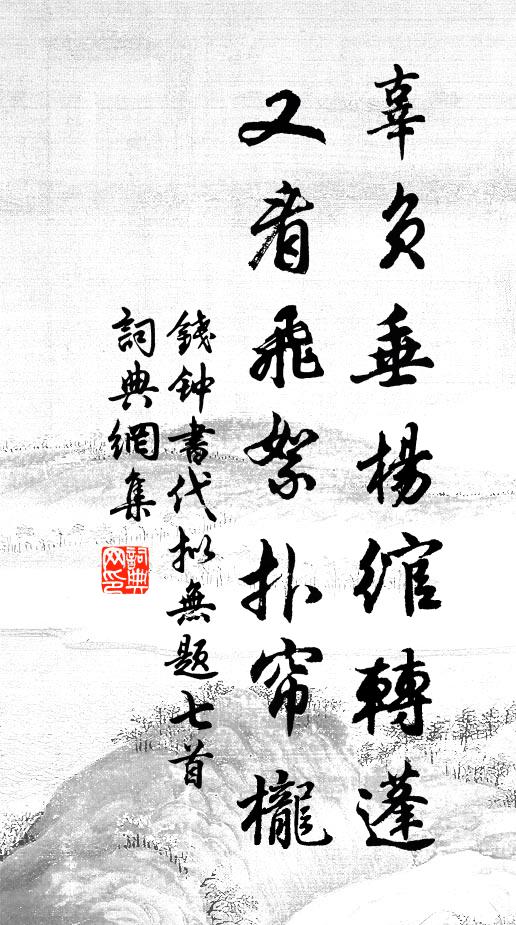 辜負垂楊綰轉蓬
又看飛絮扑帘櫳
錢钟書代拟無題七首
詞典網集
詞典网印